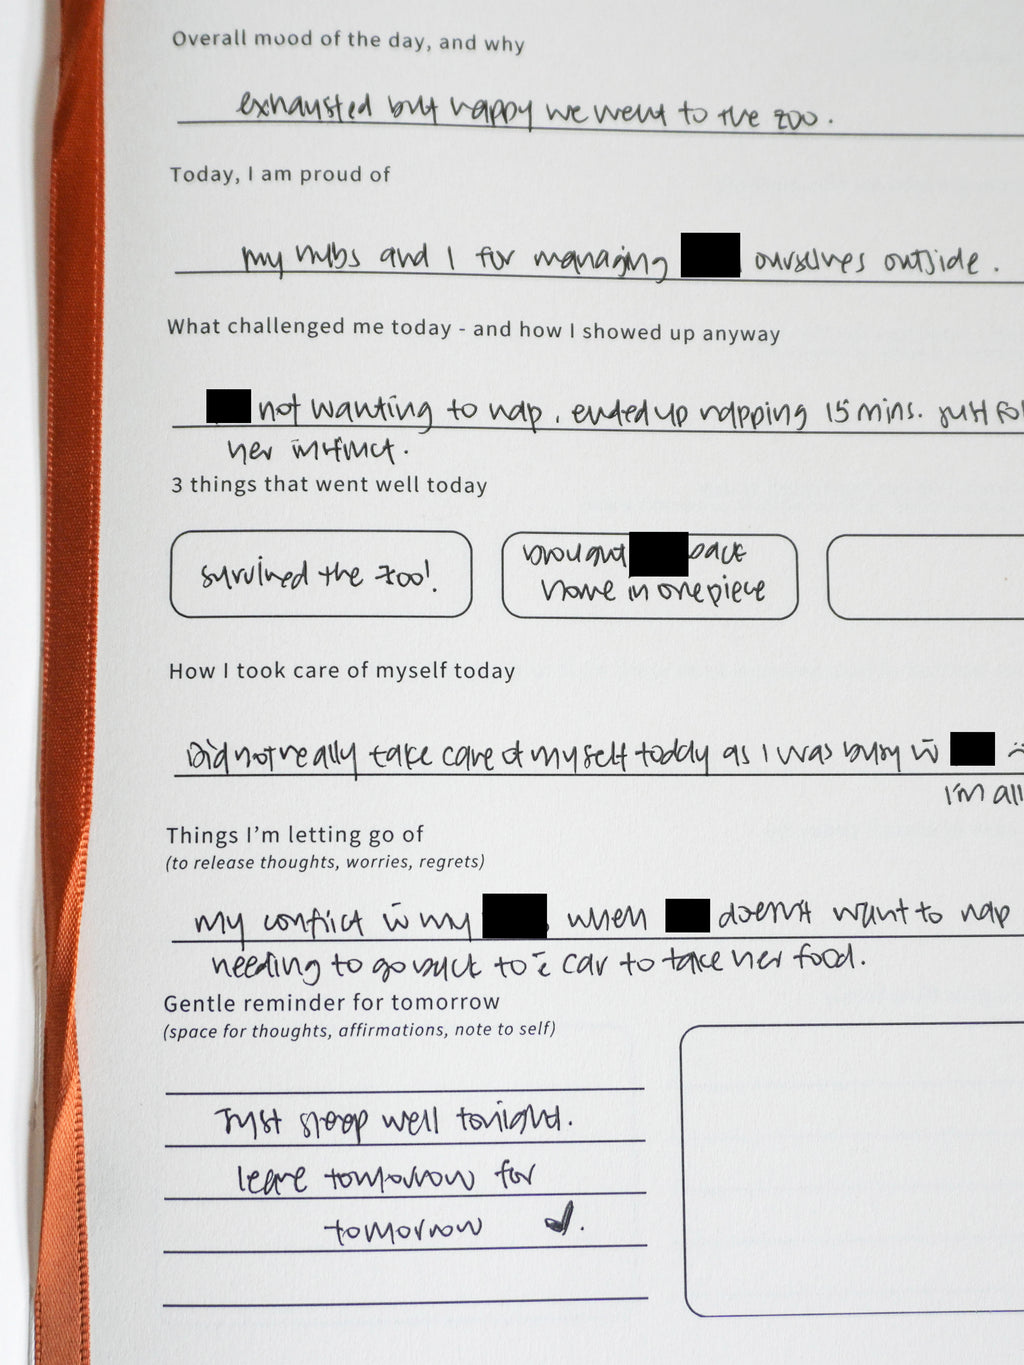 Overall mood of the day, and why
exhausted but happy we went to the zoo.
Today, I am proud of
my hubs and I for managing ourselves outside.
What challenged me today - and how I showed up anyway
not wanting to nap. ended up napping 15 mins. just
her instinct.
3 things that went well today
survived the zoo!
brought back
home in one piece
How I took care of myself today
Did not really take care of myself today as I was busy w̄
I'm all
Things I'm letting go of
(to release thoughts, worries, regrets)
my conflict w̄ my when doesn't want to nap
needing to go back to car to take her food.
Gentle reminder for tomorrow
(space for thoughts, affirmations, note to self)
Just sleep well tonight.
leave tomorrow for
tomorrow